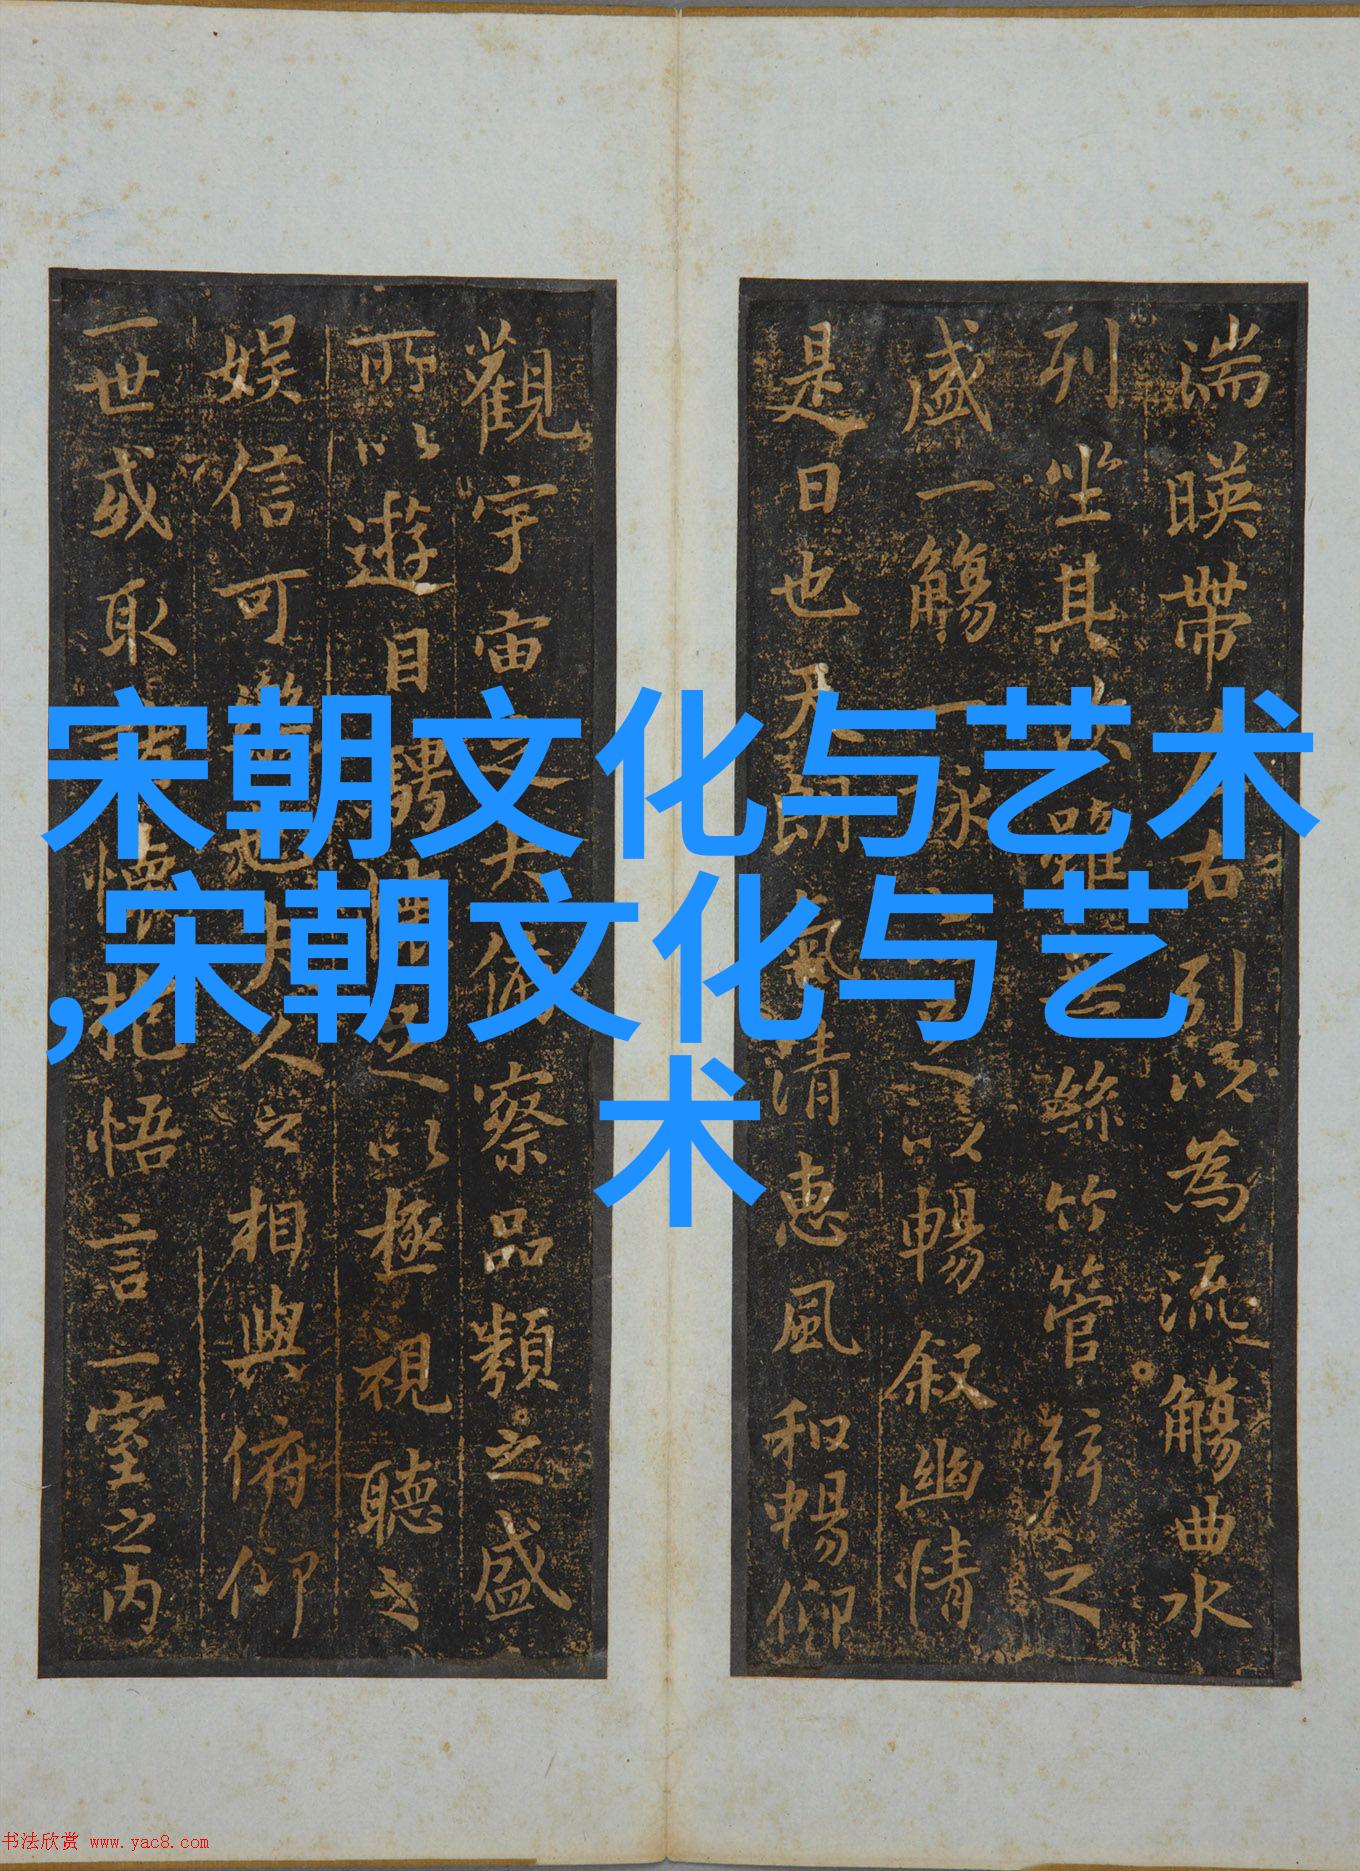 宋朝文化与艺术
,宋朝文化与艺
术
湍暎帶右引以為流觴曲水
列坐其雖絲竹管弦之
盛一觴一詠以暢叙幽情
是日也天朗氣清惠風和暢仰
觀宇宙之大俯察品類之盛
所以遊目騁足以極視聽之
娛信可也夫人之相與俯仰
一世或取諸懷抱悟言一室之内
书法欣赏 www.yac8.com